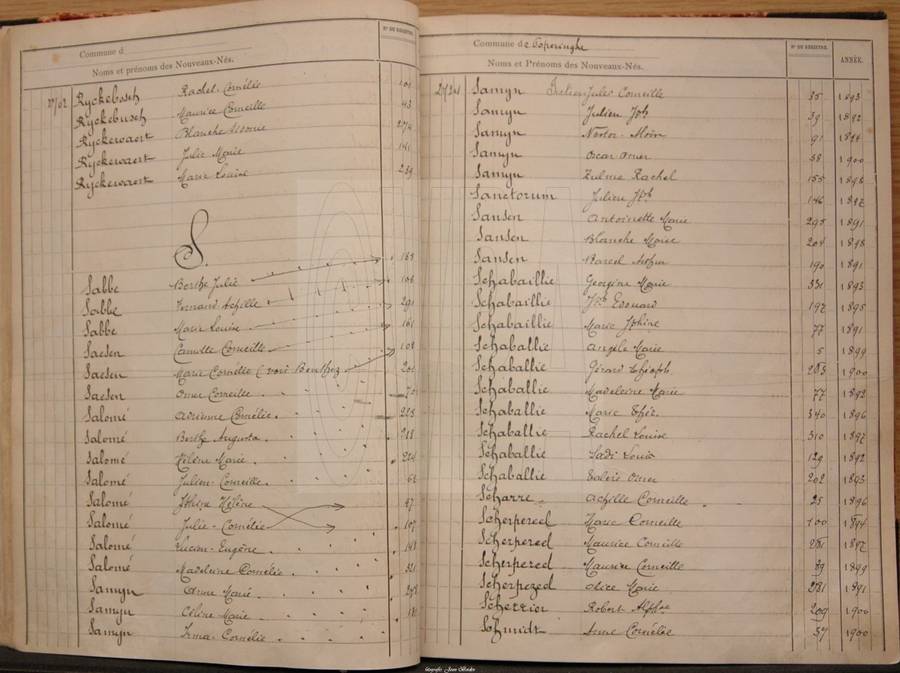 Commune d
N° DU REGISTRE.
Noms et prénoms des Nouveaux-Nés.
Ryckebosch Rachel-Cornélie 101
Ryckebusch Maurice Corneille 43
Ryckewaert Blanche 274
Ryckewaert Julie Marie 141
Ryckewaert Marie Louise 259
S.
Sabbe Berthe Julie 165
Sabbe Fernand Achille 106
Sabbe Marie Louise 291
Saesen Camille Corneille 161
Saesen Marie Cornélie (voir 108
Saesen Omer Corneille
Salomé Adrienne Cornélie 223
Salomé Berthe Augusta 288
Salomé Hélène Marie 224
Salomé Julien Corneille 62
Salomé Jphine Hélène 97
Salomé Julie-Cornélie 107
Salomé Lucien-Eugène 148
Salomé Madeleine Cornélie 321
Samyn Anne Marie
Samyn Céline Marie
Samyn Irma Cornélie
Commune de Poperinghe
N° DU REGISTRE.
ANNÉE.
Noms et Prénoms des Nouveaux-Nés.
Samyn Jules Corneille 35 1893
Samyn Julien Jph 39 1892
Samyn Nestor 91
Samyn Oscar Omer 58 1900
Samyn Zulma Rachel 155 1898
Sanctorum Julien Jph 146
Sansen Antoinette Marie 295 1891
Sansen Blanche Marie 204 1898
Sansen Marcel 190 1891
Schabaillie Georgine Marie 331 1893
Schabaillie Jph Edouard 192 1895
Schabaillie Marie Jphine 77 1891
Schaballie Angèle Marie 5 1899
Schaballie Gérard Théoph 203 1900
Schaballie Madeleine Marie 77 1892
Schaballie Marie 340 1896
Schaballie Rachel Louise 310 1897
Schaballie Sadi Louis 129 1892
Schaballie Valère Omer 202 1893
Scharre Achille Corneille 25 1896
Scherpereel Marie Corneille 100 1894
Scherpereel Maurice Corneille 281 1897
Scherpereel Maurice Corneille 39 1899
Scherpereel Alice Marie 281 1891
Scherrier Robert Alphse 209 1900
Schmidt Anne Cornélie 57 1900